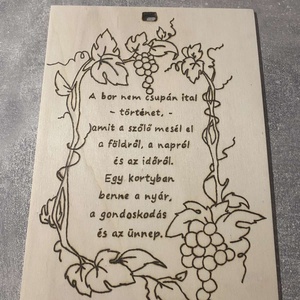 A bor nem csupán ital
- történet, -
amit a szőlő mesél el
a földről, a napról
és az időről.
Egy kortyban
benne a nyár,
a gondoskodás
és az ünnep.